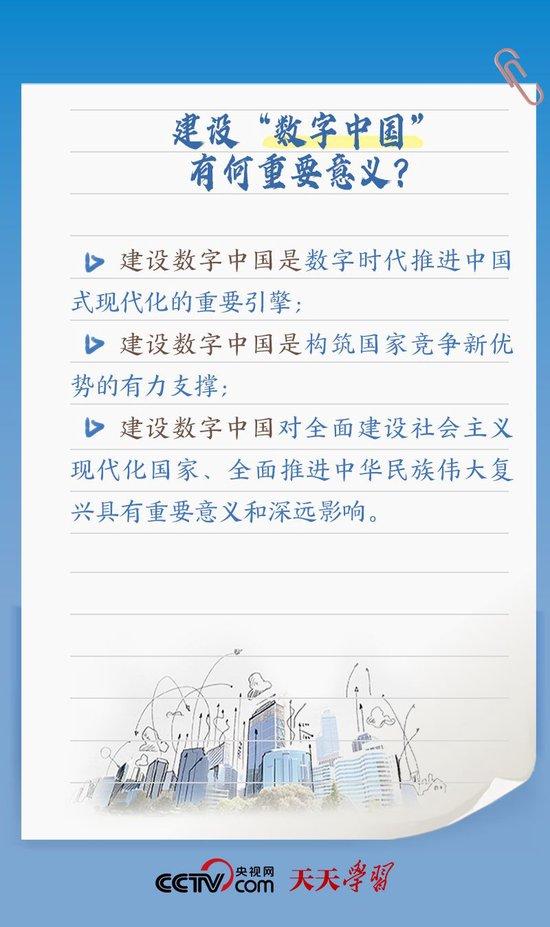 建设“数字中国”
有何重要意义？
建设数字中国是数字时代推进中国
式现代化的重要引擎；
建设数字中国是构筑国家竞争新优
势的有力支撑；
建设数字中国对全面建设社会主义
现代化国家、全面推进中华民族伟大复
兴具有重要意义和深远影响。
CCTV.com 央视网 天天学習